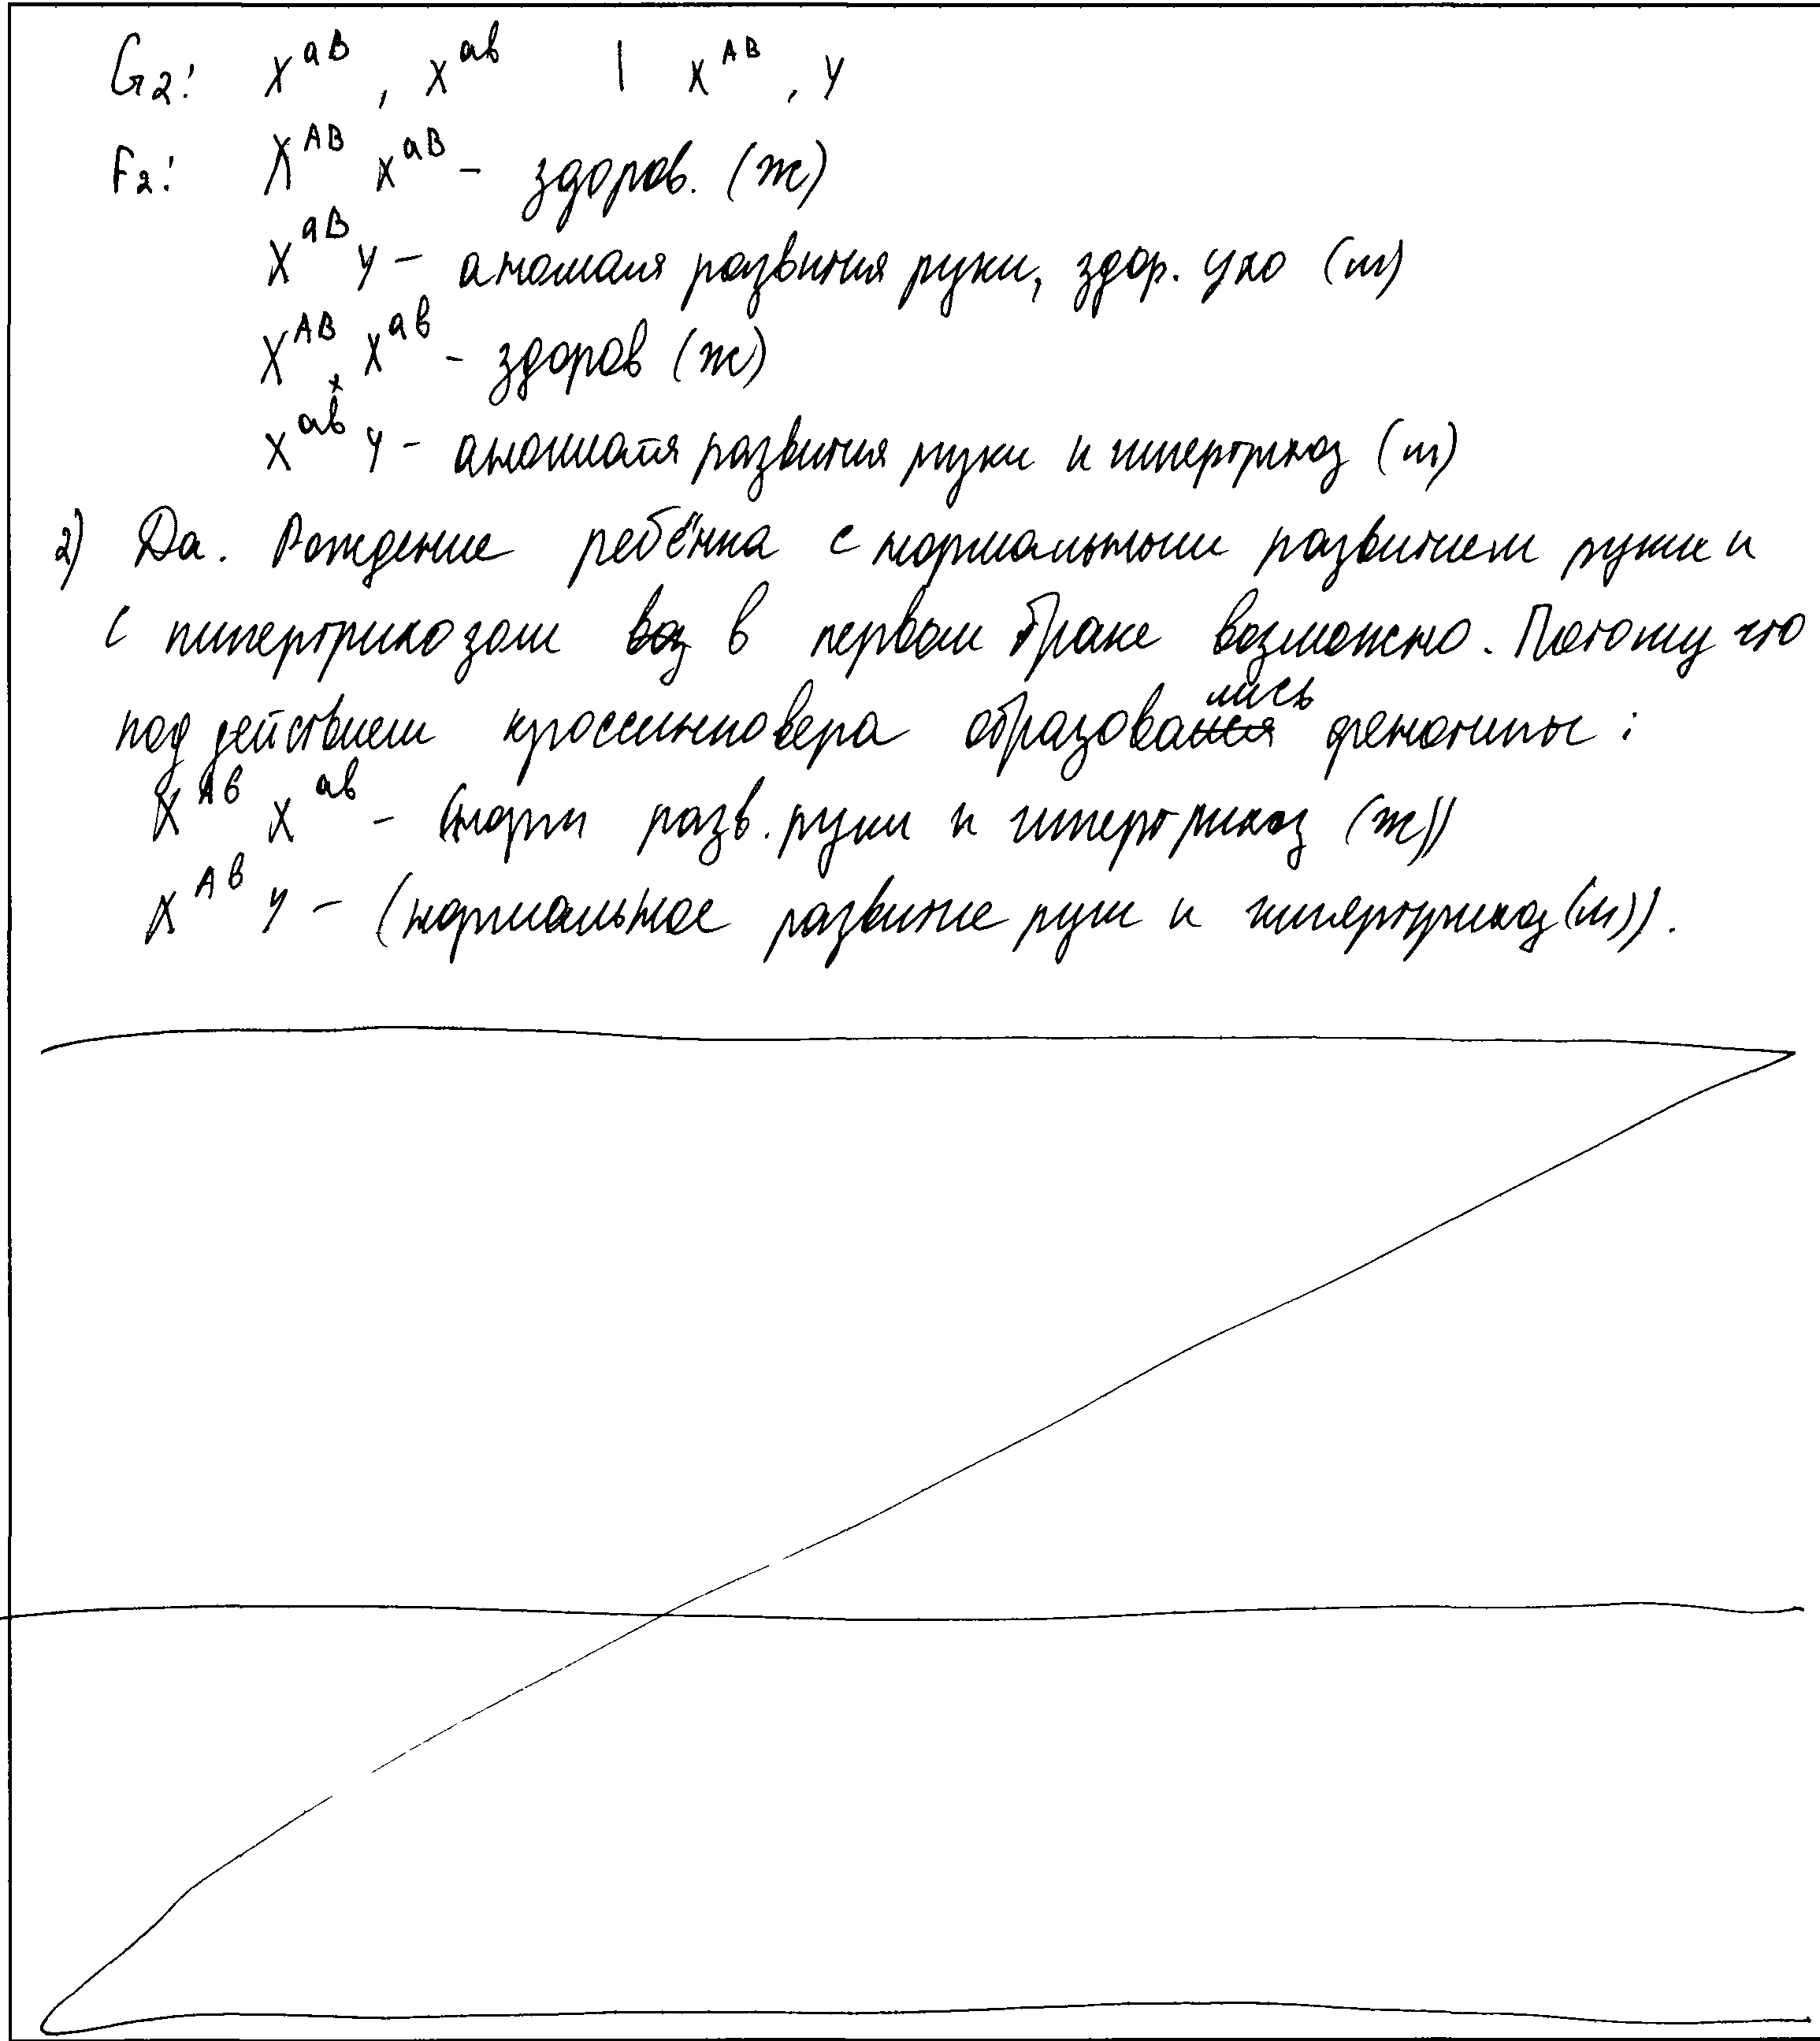 G₂: X^aB, X^ab | X^AB, Y
F₂: X^AB X^aB – здоров. (ж)
X^aB Y – аномалия развития руки, здор. ухо (м)
X^AB X^ab – здоров (ж)
X^ab Y – аномалия развития руки и гипертрихоз (м)
2) Да. Рождение ребёнка с нормальным развитием руки и
с гипертрихозом воз в первом браке возможно. Потому что
под действием кроссинговера образовались фенотипы:
X^Ab X^ab – (норм разв. руки и гипертрихоз (ж))
X^Ab Y – (нормальное развитие руки и гипертрихоз (м)).